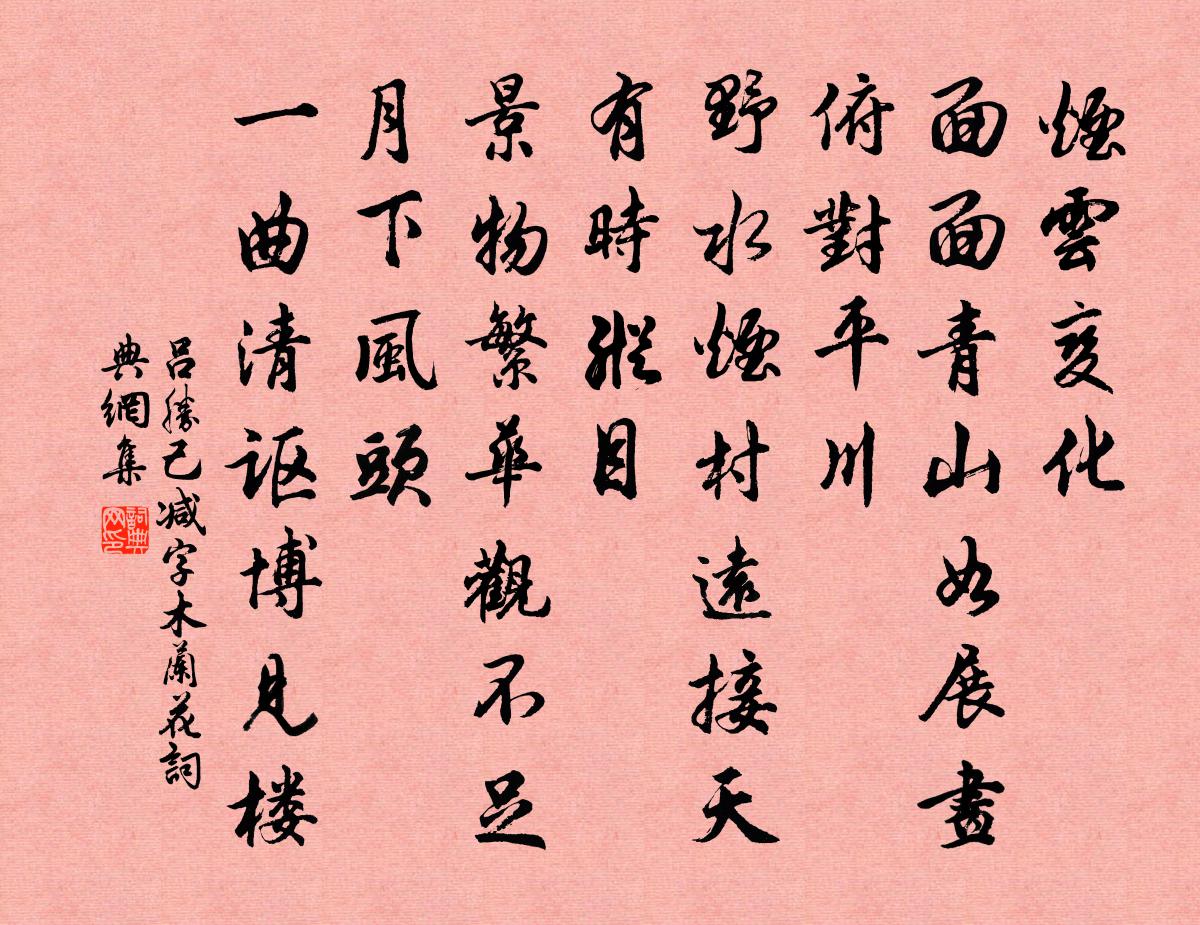 煙雲变化
面面青山如展畫
俯對平川
野水煙村遠接天
有時縱目
景物繁華觀不足
月下風頭
一曲清讴博見楼
呂勝己减字木蘭花詞
典網集
詞典网印